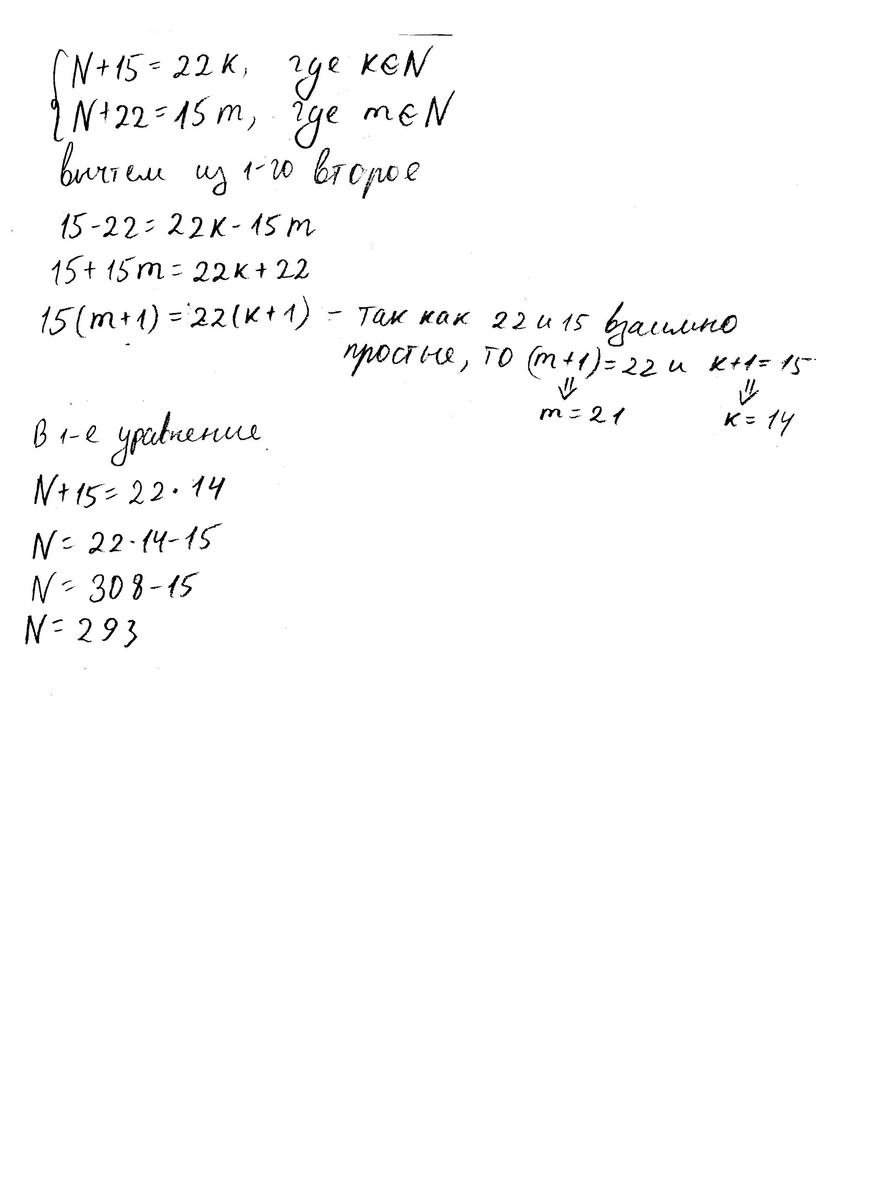 { N+15=22к, где к∈N
N+22=15m, где m∈N
вычтем из 1-го второе
15-22=22к-15m
15+15m=22к+22
15(m+1)=22(к+1) - так как 22 и 15 взаимно
простые, то (m+1)=22 и к+1=15
⇓ ⇓
m=21 к=14
В 1-е уравнение
N+15=22·14
N=22·14-15
N=308-15
N=293